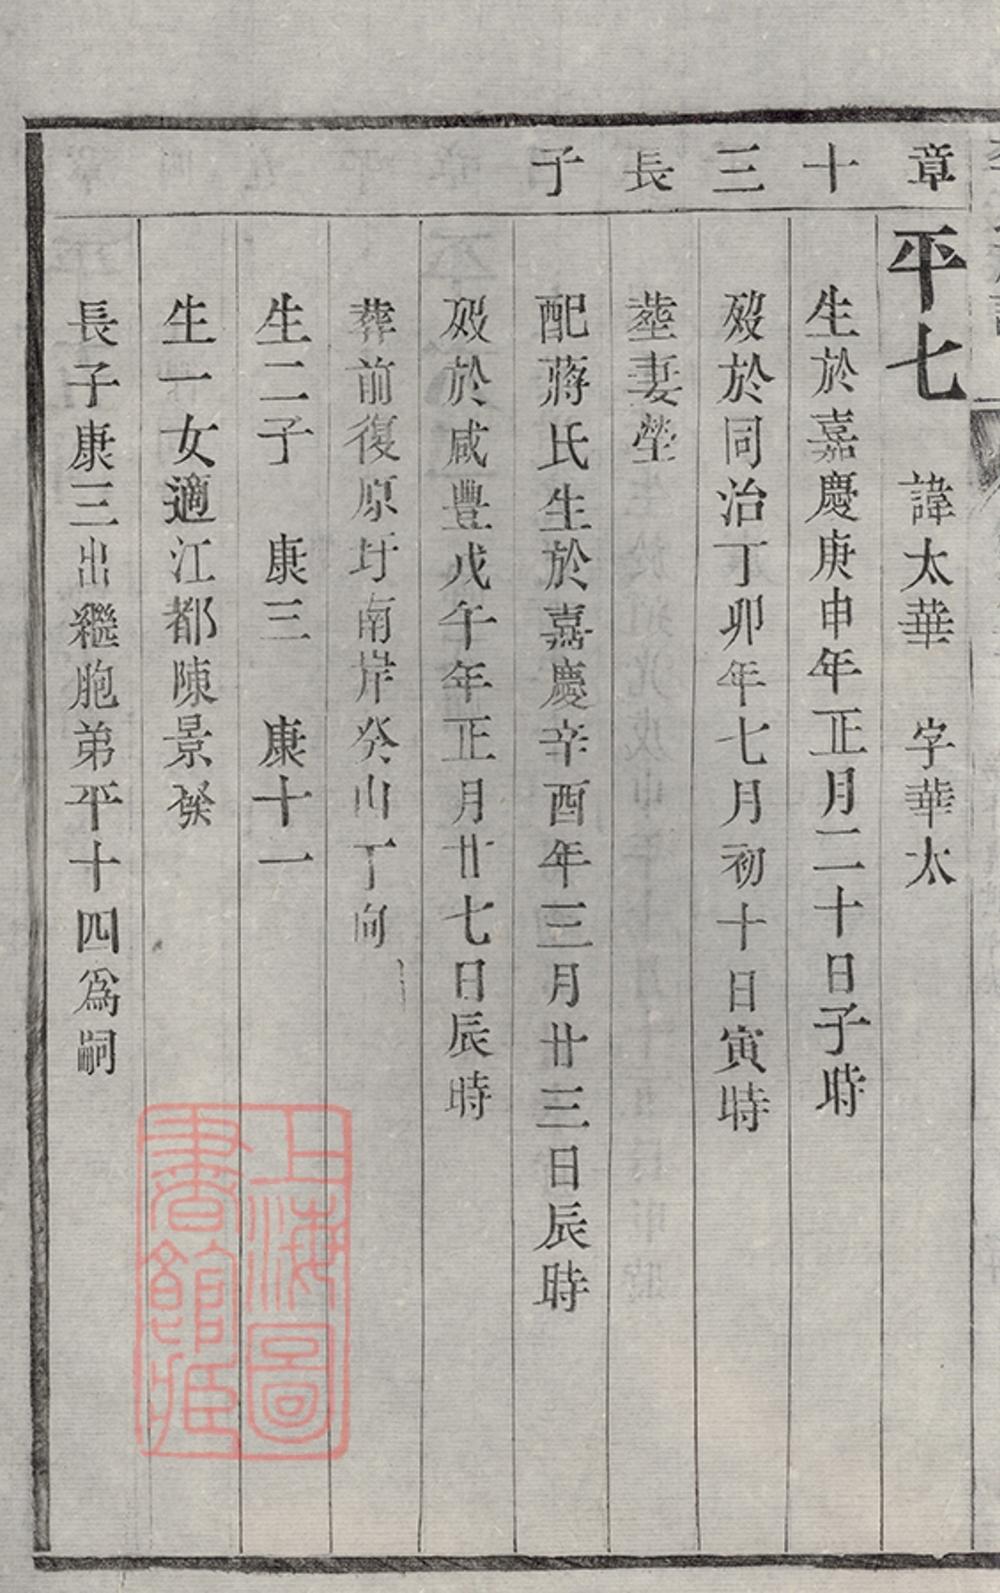 章十三長子
平七 諱太華 字華太
生於嘉慶庚申年正月二十日子時
歿於同治丁卯年七月初十日寅時
塟妻塋
配蔣氏生於嘉慶辛酉年三月廿三日辰時
歿於咸豐戊午年正月廿七日辰時
葬前復原圩南岸癸山丁向
生二子 康三 康十一
生一女適江都陳景
長子康三出繼胞弟平十四為嗣
上海圖
書館藏